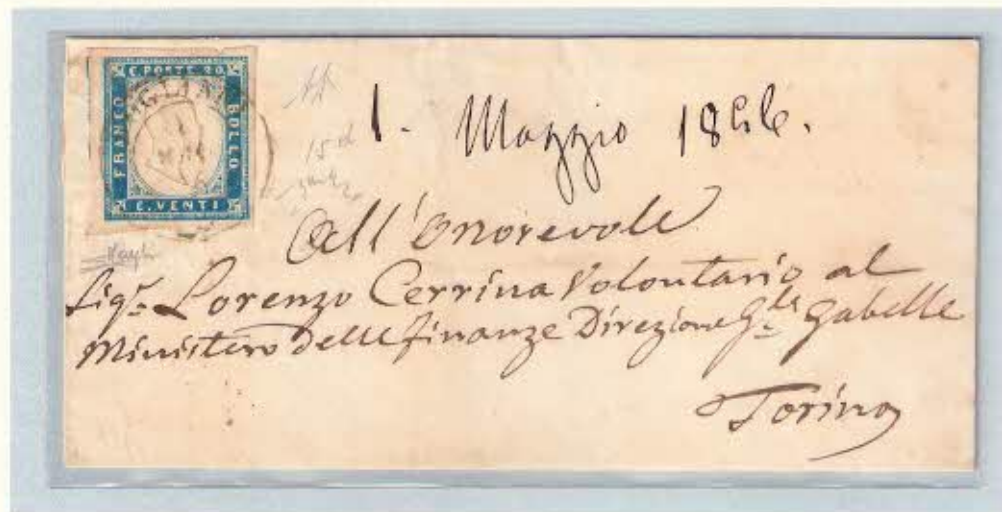 C. POSTE 20
FRANCO
BOLLO
C. VENTI
1. Maggio
All'Onorevole
Sigr. Lorenzo Cerrina Volontario al
Ministero delle finanze Direzione Gle Gabelle
Torino